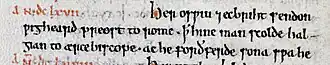 AN.DCLXVII. Her osƿiu ⁊ ecbriht sendon
ƿigheard preost to rome. ꝥ hine man scolde hal
gian to ærcebiscope. ac he forðferde sona sƿa he